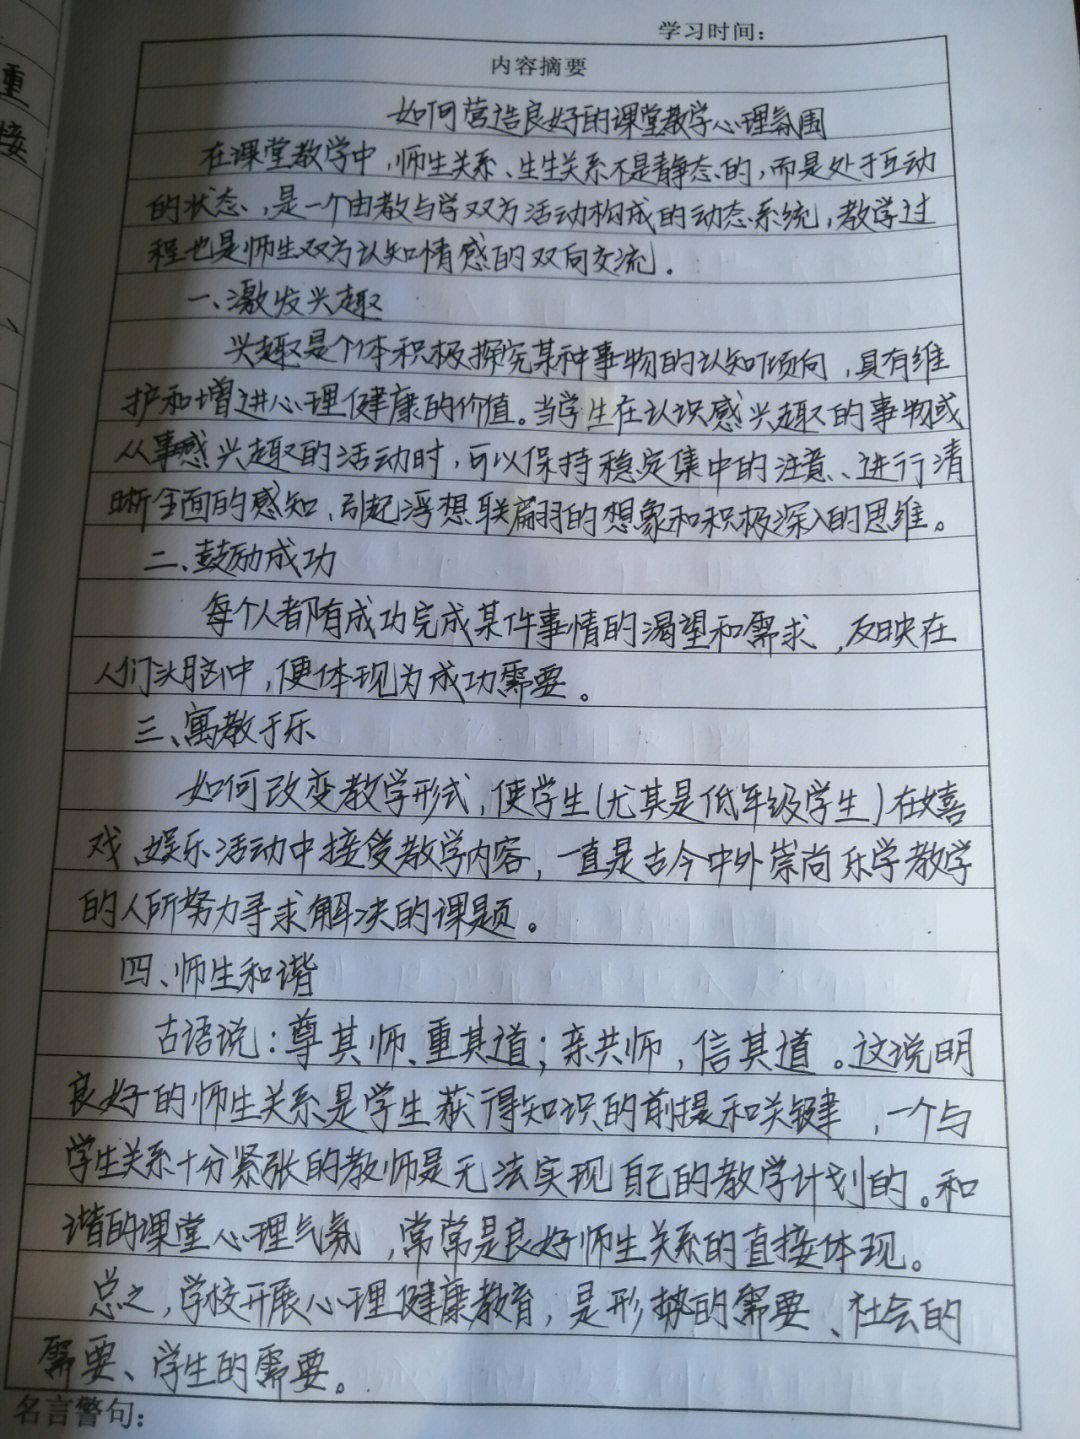 重
接
学习时间：
内容摘要
如何营造良好的课堂教学心理氛围
在课堂教学中，师生关系、生生关系不是静态的，而是处于互动
的状态，是一个由教与学双方活动构成的动态系统，教学过
程也是师生双方认知情感的双向交流。
一、激发兴趣
兴趣是个体积极探究某种事物的认知倾向，具有维
护和增进心理健康的价值。当学生在认识感兴趣的事物或
从事感兴趣的活动时，可以保持稳定集中的注意、进行清
晰全面的感知、引起浮想联翩的想象和积极深入的思维。
二、鼓励成功
每个人都有成功完成某件事情的渴望和需求，反映在
人们头脑中，便体现为成功需要。
三、寓教于乐
如何改变教学形式，使学生(尤其是低年级学生)在嬉
戏、娱乐活动中接受教学内容，一直是古今中外崇尚乐学教学
的人所努力寻求解决的课题。
四、师生和谐
古语说：尊其师、重其道；亲其师，信其道。这说明
良好的师生关系是学生获得知识的前提和关键，一个与
学生关系十分紧张的教师是无法实现自己的教学计划的。和
谐的课堂心理气氛，常常是良好师生关系的直接体现。
总之，学校开展心理健康教育，是形势的需要、社会的
需要、学生的需要。
名言警句：